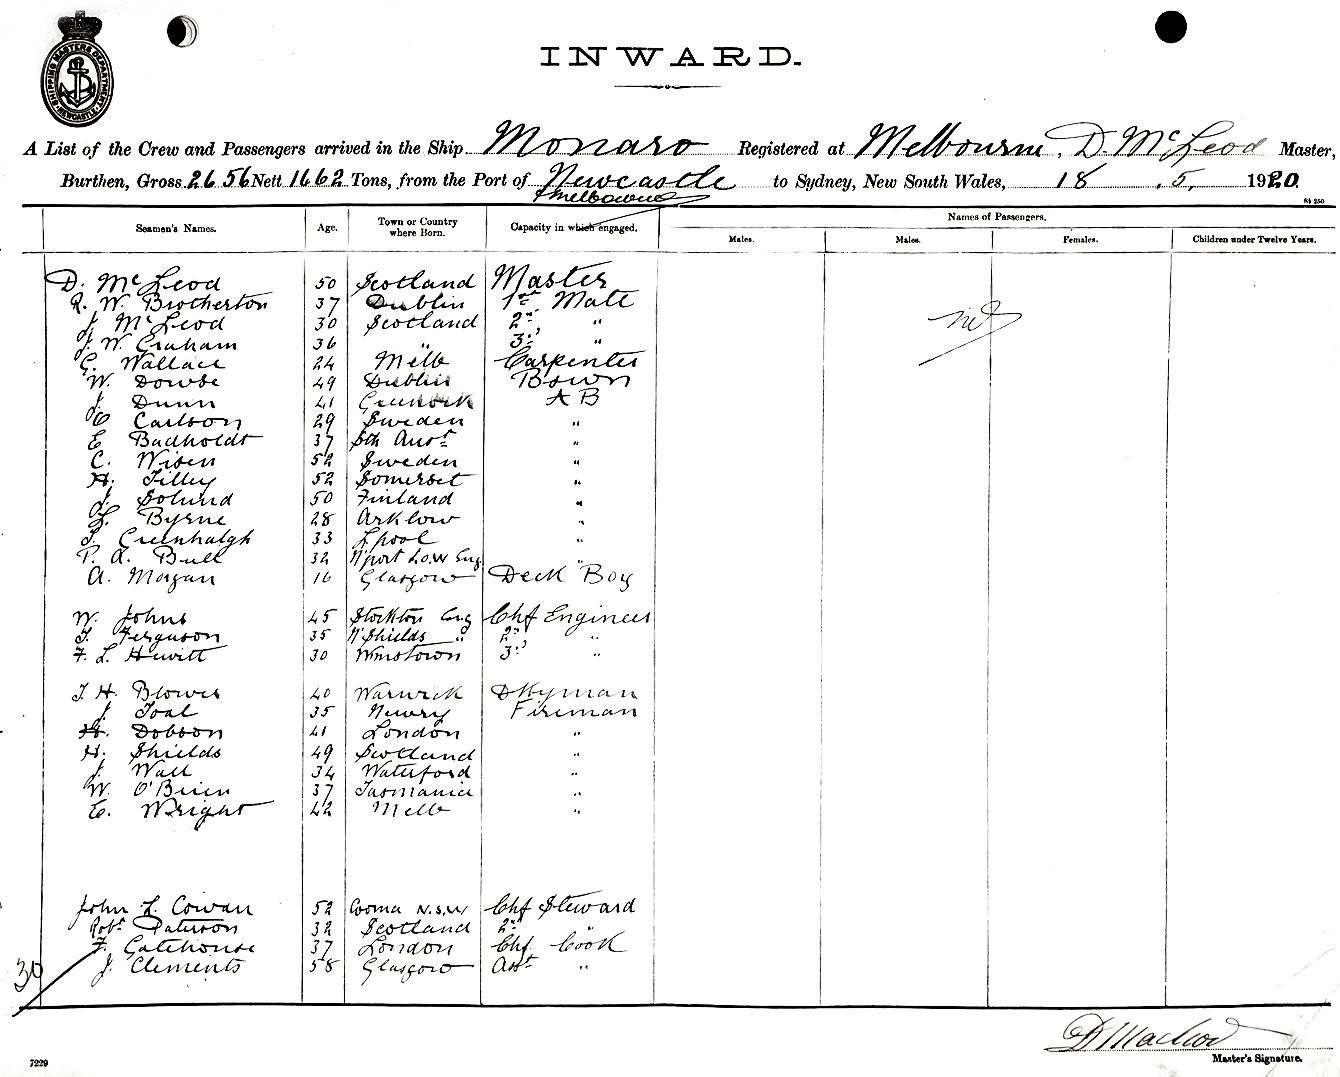 SHIPPING MASTERS DEPARTMENT NEWCASTLE
INWARD.
A List of the Crew and Passengers arrived in the Ship Monaro Registered at Melbourne, D. McLeod Master,
Burthen, Gross 2656 Nett 1662 Tons, from the Port of Newcastle to Sydney, New South Wales, 18 . 5. 1920.
Melbourne
S4 250
Seamen's Names. Age. Town or Country where Born. Capacity in which engaged. Names of Passengers.
Males. Males. Females. Children under Twelve Years.
D. McLeod 50 Scotland Master
R. W. Brotherton 37 Dublin 1st Mate
J. McLeod 30 Scotland 2nd "
J. W. Graham 36 " 3rd "
nil
G. Wallace 24 Melb Carpenter
W. Dowse 49 Dublin Boswn
J. Dunn 41 Greenock AB
C Carlson 29 Sweden "
E Budholdt 37 Sth Aust "
C. Wisen 52 Sweden "
H. Tilley 52 Somerset "
J. Solund 50 Finland "
L. Byrne 28 Arklow "
T. Greenhalgh 33 Lpool "
P. A. Bull 32 N'port I.O.W Eng "
A. Morgan 16 Glasgow Deck Boy
W. Johns 45 Stockton Eng Chf Engineer
T. Ferguson 35 N'Shields " 2nd "
F. L. Hewitt 30 Wmstown 3rd "
T. H. Blowes 40 Warwick Dkyman
J. Toal 35 Newry Fireman
H. Dobson 41 London "
H. Shields 49 Scotland "
J. Wall 34 Waterford "
W. O'Brien 37 Tasmania "
E. Wright 42 Melb "
John L. Cowan 52 Cooma N.S.W Chf Steward
Robt Paterson 32 Scotland 2nd "
F. Gatehouse 37 London Chf Cook
J. Clements 58 Glasgow Asst "
30
D Macleod
Master's Signature.
7229